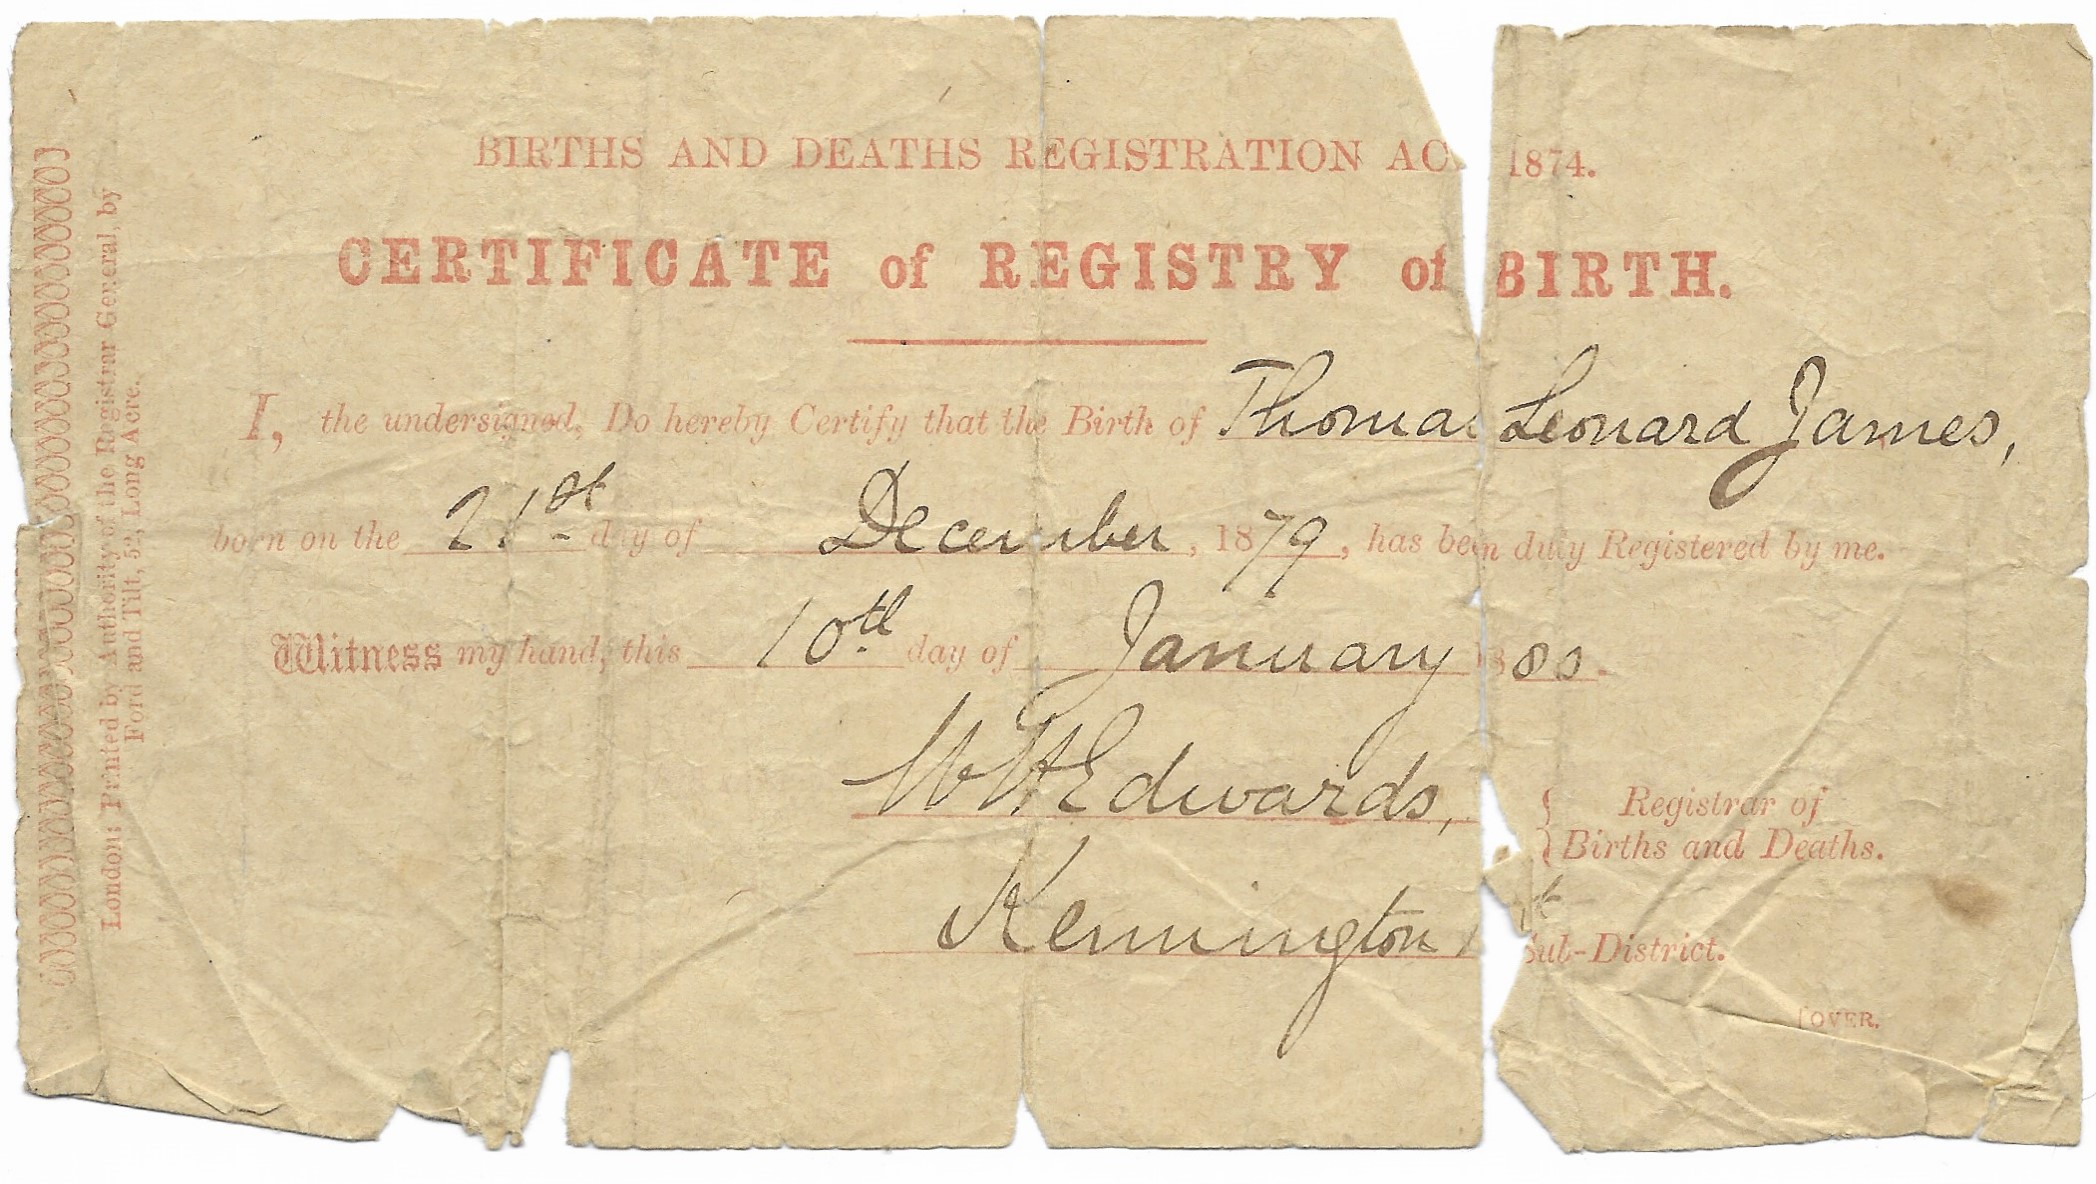 BIRTHS AND DEATHS REGISTRATION AC 1874.
CERTIFICATE of REGISTRY of BIRTH.
I, the undersigned, Do hereby Certify that the Birth of Thomas Leonard James,
born on the 21st day of December, 1879, has been duly Registered by me.
Witness my hand, this 10th day of January 1880.
W H Edwards, Registrar of
Births and Deaths.
Kennington
Sub-District.
[OVER.
London: Printed by Authority of the Registrar General, by
Ford and Tilt, 52, Long Acre.